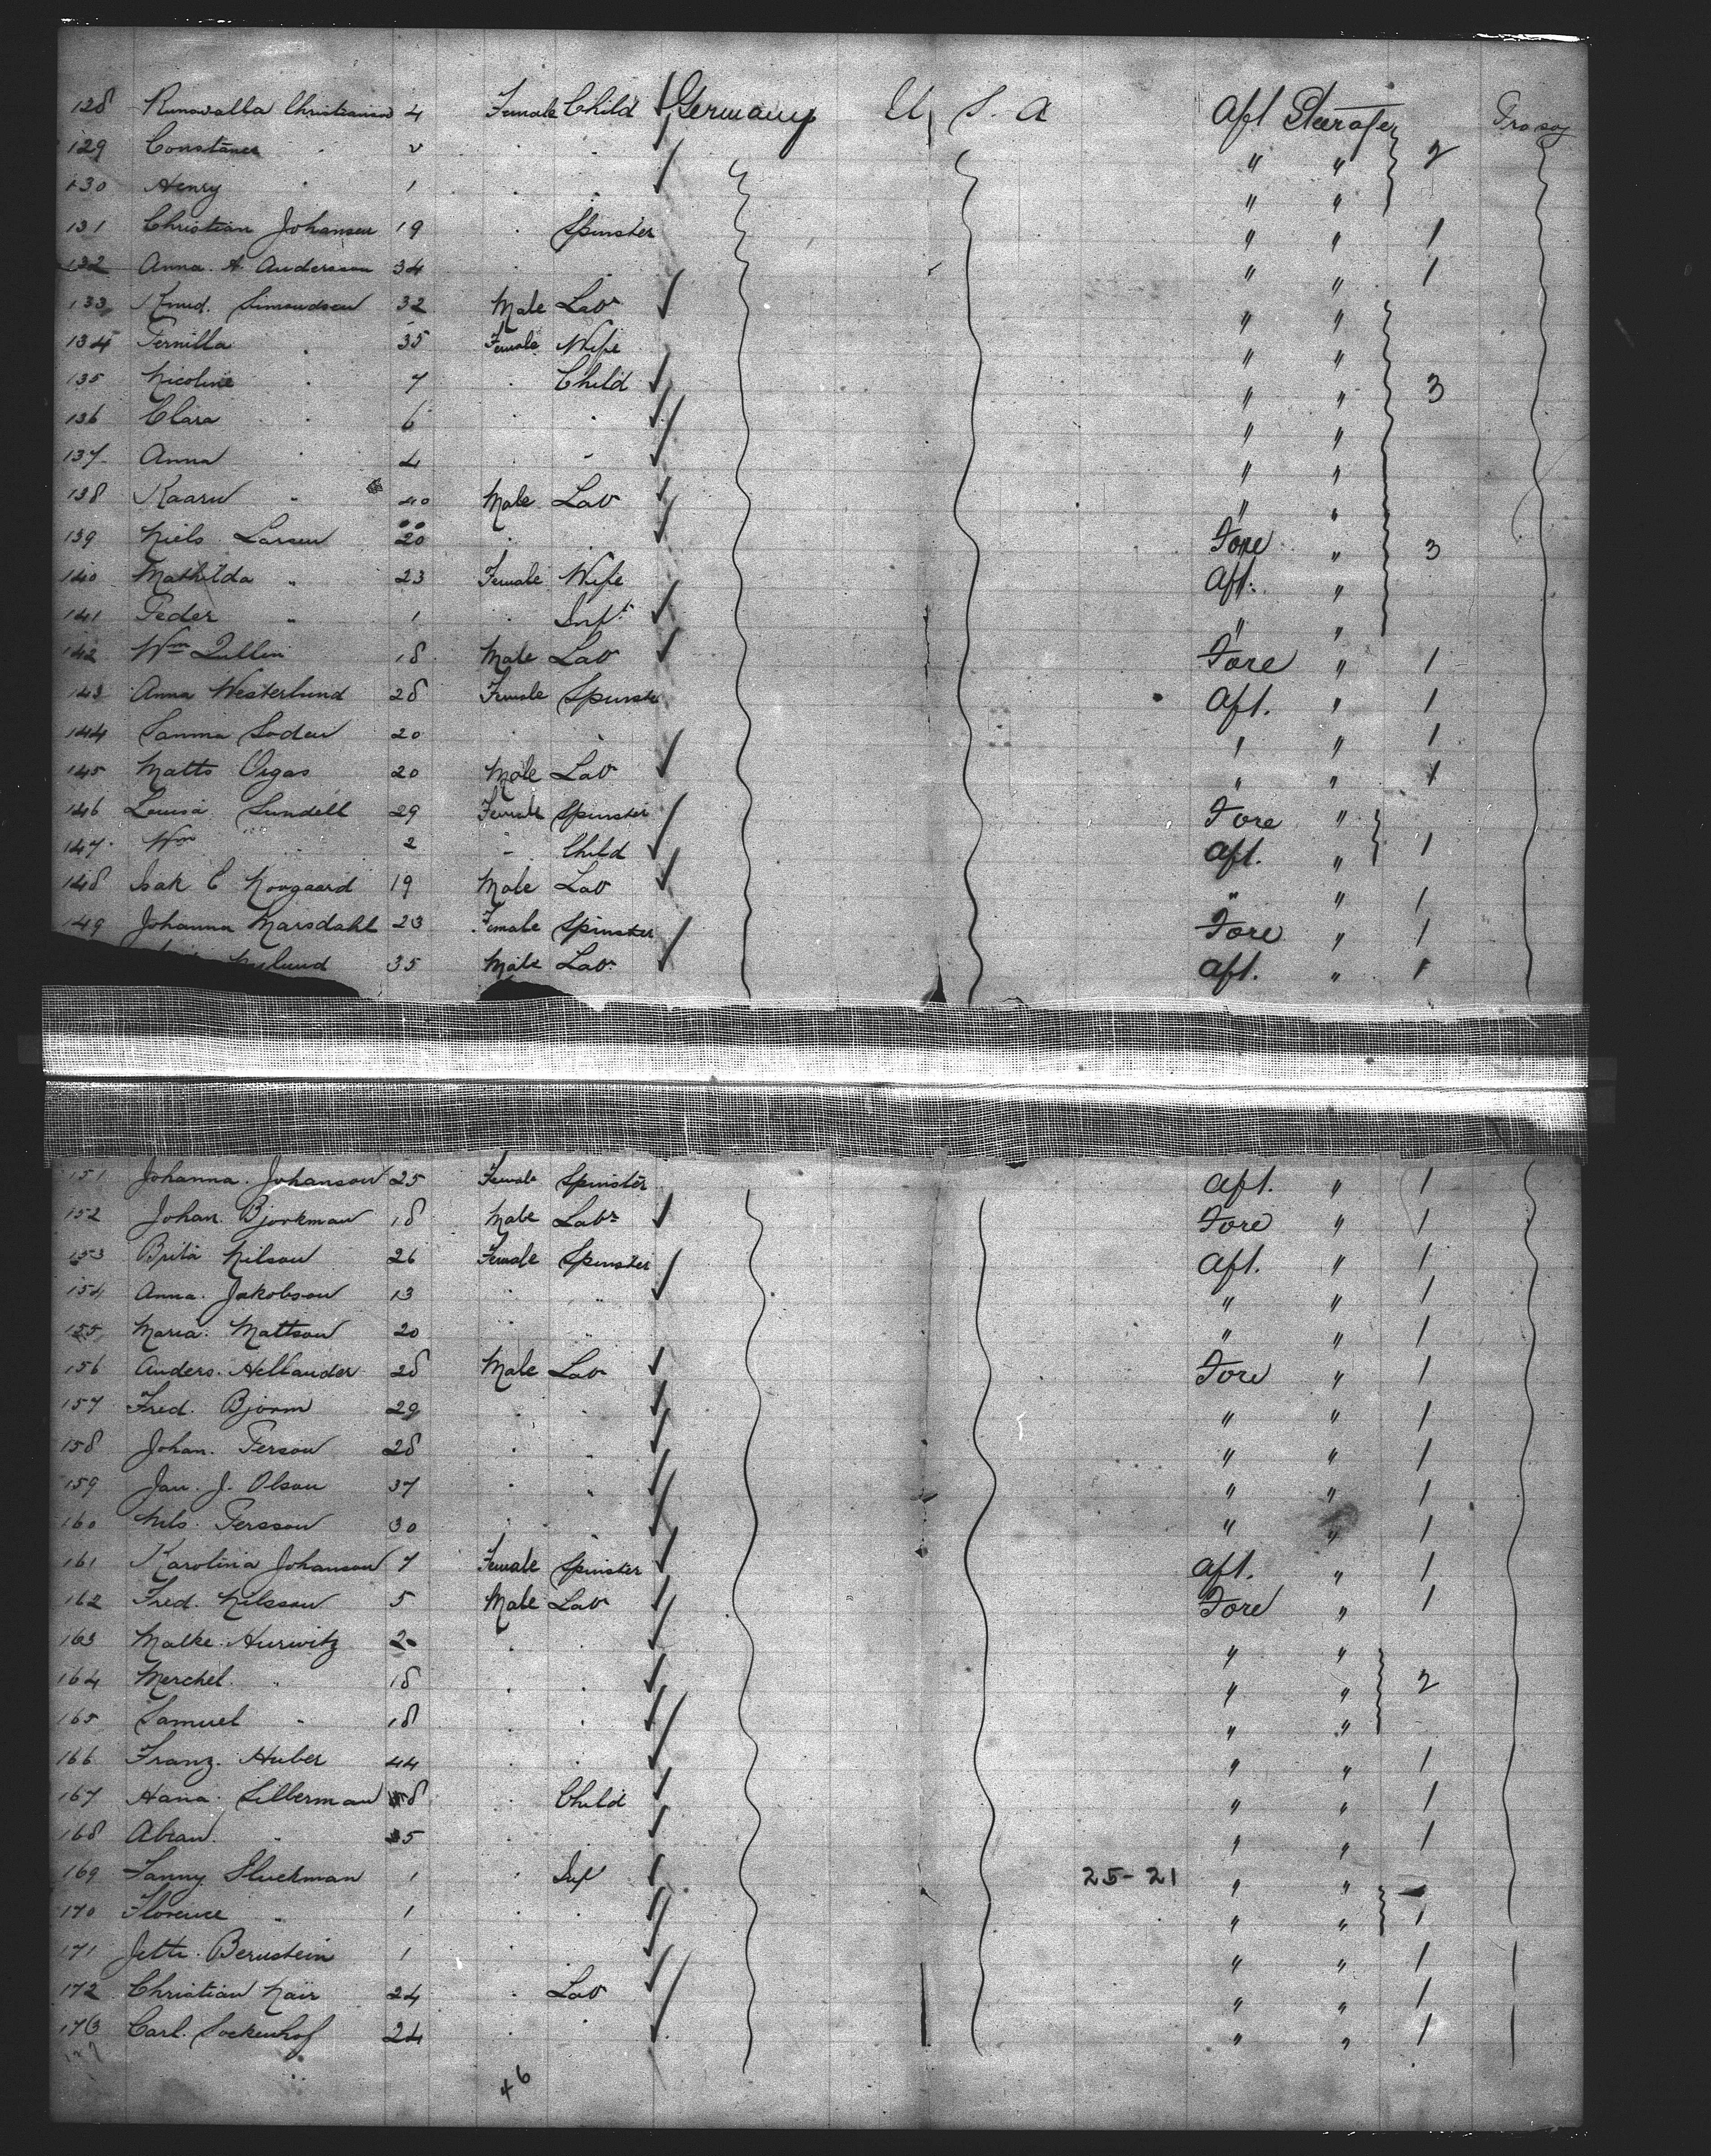 128 Christianson 4 Female Child Germany U S. A Aft Steerage
129 Constance " 2 " " " " 2
130 Henry " 1 " " " "
131 Christian Johansen 19 " Spinster " " 1
132 Anna A. Andersson 34 " " " " 1
133 Knud. Simondsen 32 Male Labr " "
134 Pernilla " 35 Female Wife " "
135 Nicoline " 7 " Child " " 3
136 Clara " 6 " " " "
137 Anna " 4 " " " "
138 " 40 Male Lab " "
139 Niels Larsen 20 " " Fore " 3
140 Mathilda " 23 Female Wife Aft. "
141 Peder " 1 " Inft " "
142 Wm 18 Male Lab Fore " 1
143 Anna Westerlund 28 Female Spinster Aft. " 1
144 Sanna 20 " " " " 1
145 Matts 20 Male Lab " " 1
146 Lovisa Sundell 29 Female Spinster Fore "
147 Wm " 2 " Child Aft. " 1
148 Isak E Norgaard 19 Male Lab " " 1
149 Johanna Marsdahl 23 Female Spinster Fore " 1
Nylund 35 Male Lab Aft. " 1
151 Johanna. Johanson 25 Female Spinster Aft. " 1
152 Johan. Bjorkman 18 Male Labr Fore " 1
153 Brita Nilson 26 Female Spinster Aft. " 1
154 Anna. Jakobson 13 " " " " 1
155 Maria. Mattson 20 " " " " 1
156 Anders. Hellander 28 Male Lab Fore " 1
157 Fred. Bjorm 29 " " " " 1
158 Johan. Person 28 " " " " 1
159 Jan. J. Olson 37 " " " " 1
160 Nils. Persson 30 " " " " 1
161 Karolina Johanson 7 Female Spinster Aft. " 1
162 Fred. Nilsson 5 Male Lab Fore " 1
163 Malke. Hurwitz 20 " " " "
164 Merchel. " 18 " " " " 2
165 Samuel " 18 " " " "
166 Franz. Huber 44 " " " " 1
167 Hana. Silberman 8 " Child " " 1
168 Abram. " 5 " " " " 1
169 Fanny 1 " Inf 25-21 " "
170 Florence " 1 " " " 1
171 Jette. Bernstein 1 " " " 1
172 Christian 24 " Lab " " 1
173 Carl. Sockenhof 24 " " " " 1
46